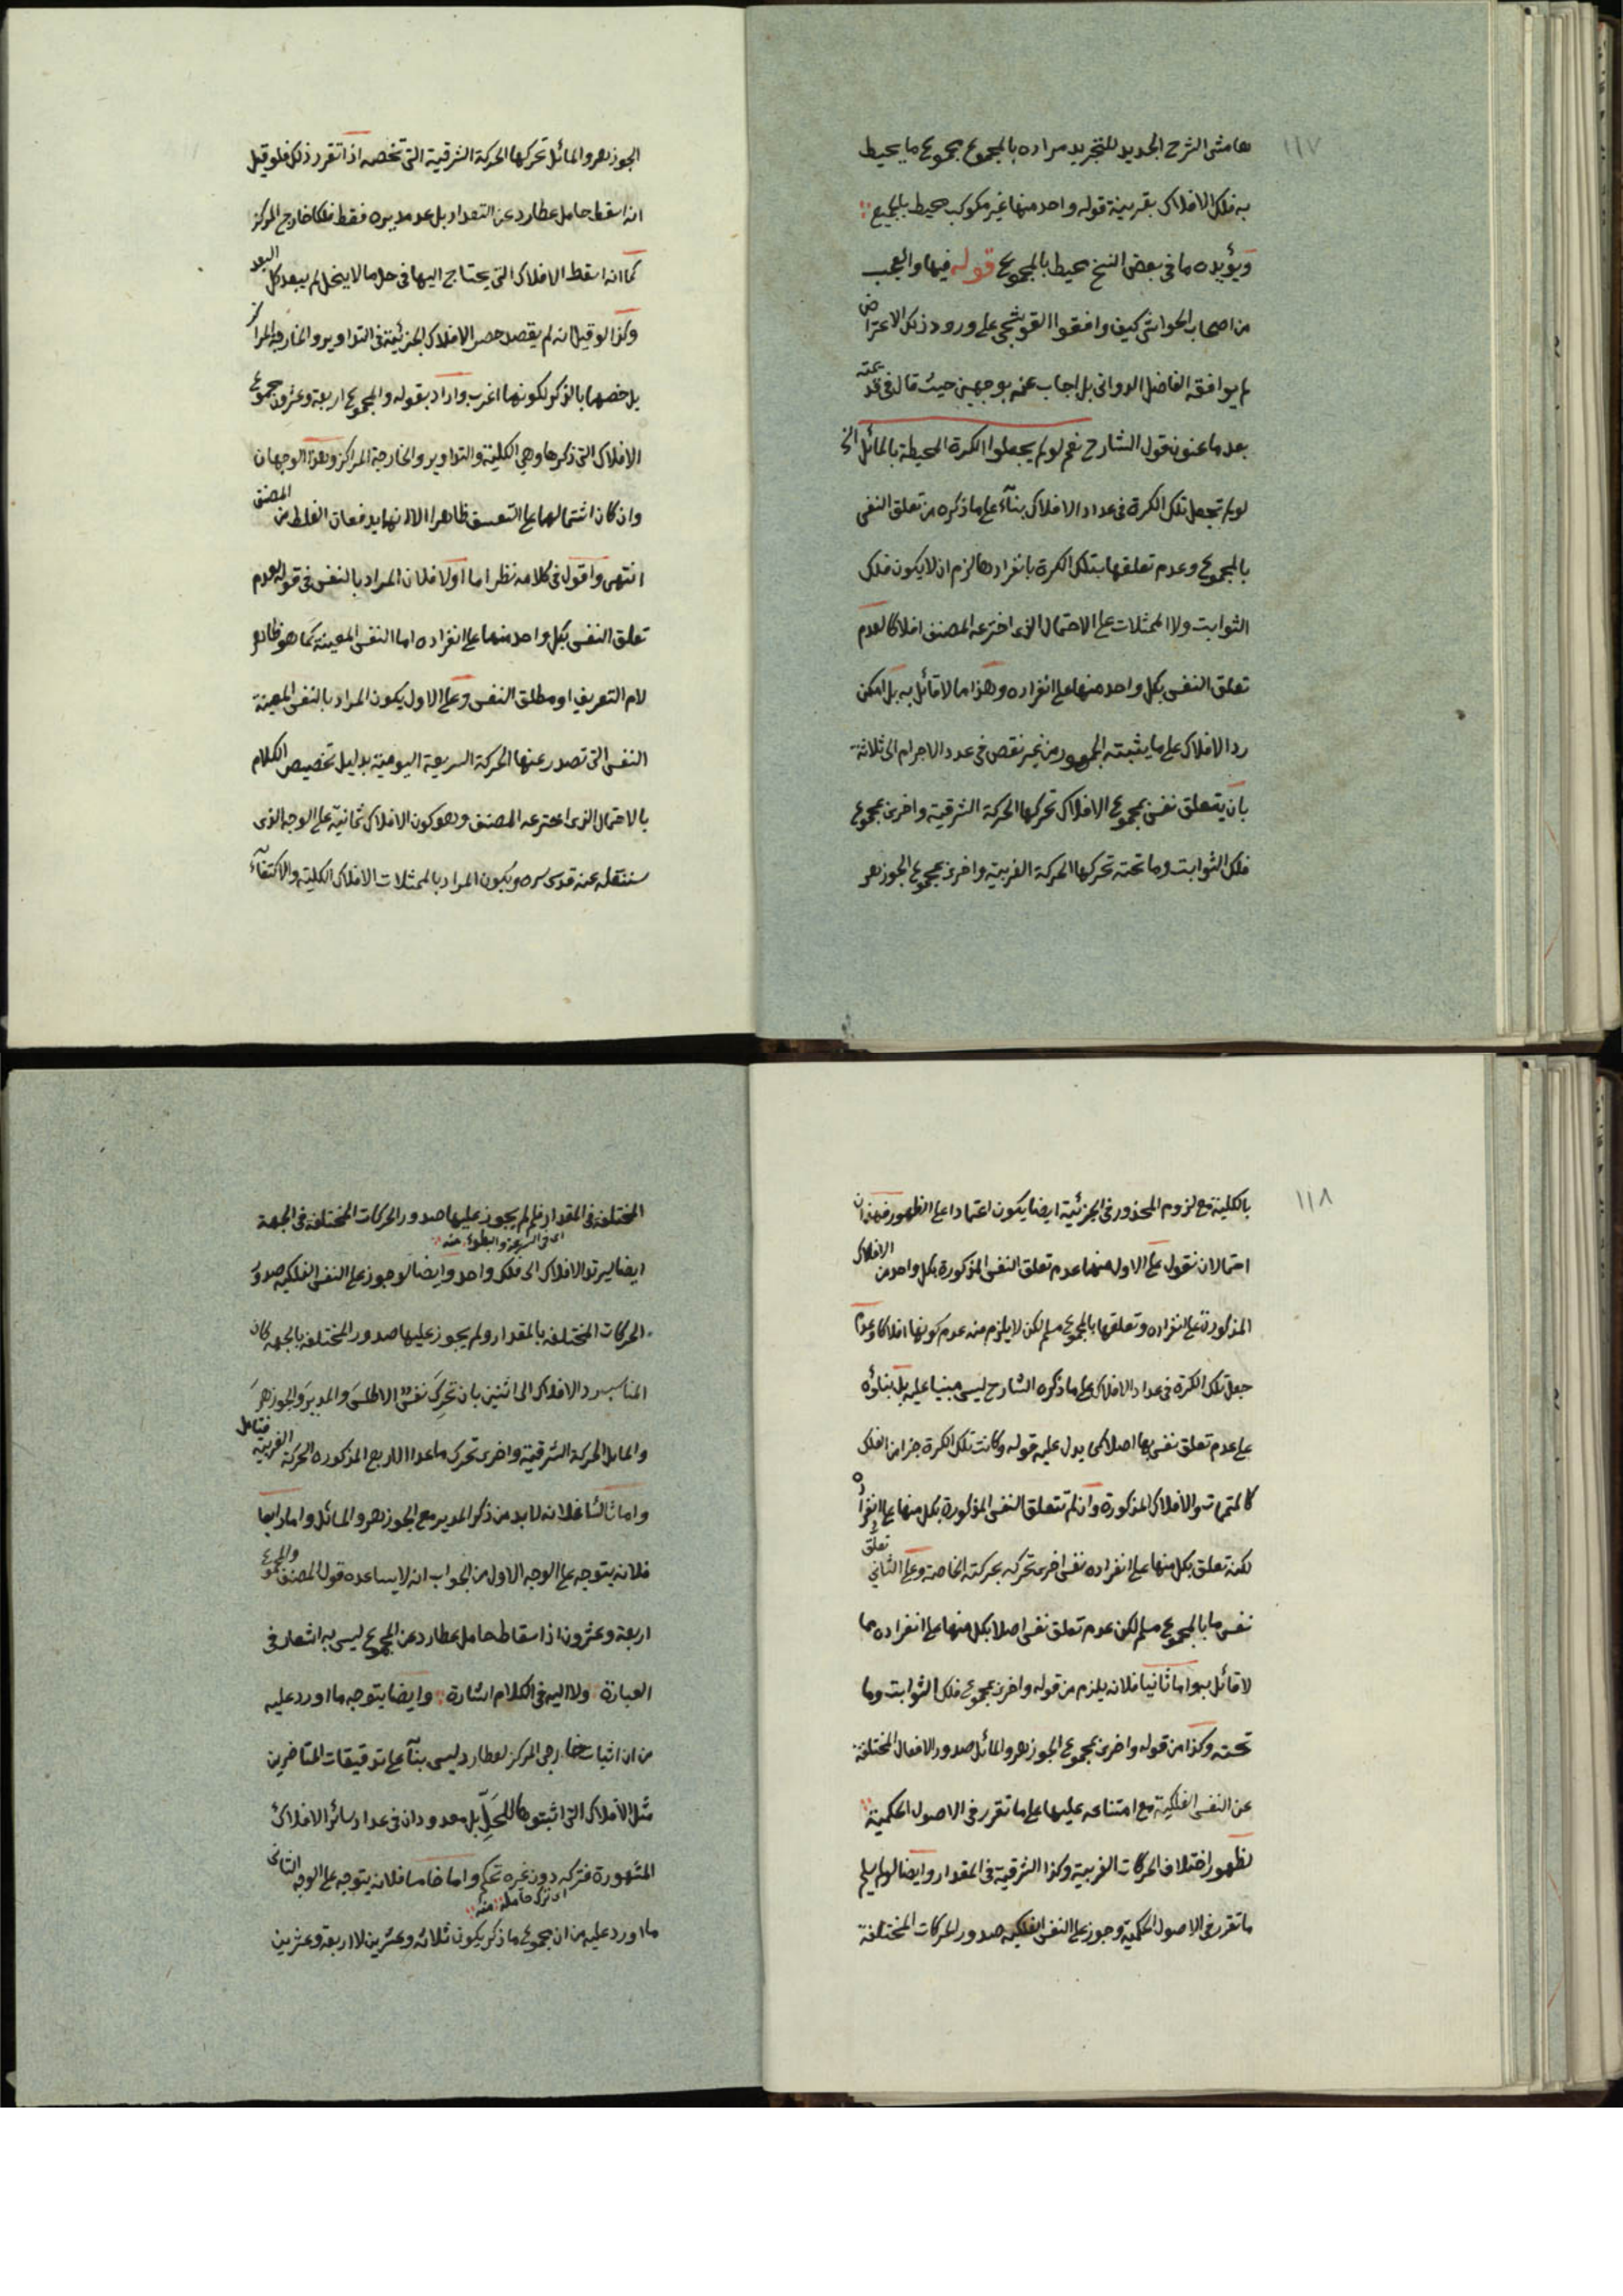 ١١٧
هامش الشرح الجديد للتجريد مراده بالمجموع مجموع ما يحيط
به فلك الافلاك بقرينة قوله واحد منها غير مكوكب محيط بالجميع
ويؤيده ما في بعض النسخ محيط بالمجموع قوله فيها والعجب
من اصحاب الحواشي كيف وافقوا القوشجي على ورود ذلك الاعتراض
لم يوافقه الفاضل الدواني بل اجاب عنه بوجهين حيث قال في
بعد ما عنون قول الشارح نعم لو لم يجعلوا الكرة المحيطة بالمائل الخ
لو لم تجعل تلك الكرة في عداد الافلاك بناء على ما ذكره من تعلق النفس
بالمجموع وعدم تعلقها بتلك الكرة بانفرادها لزم ان لا يكون فلك
الثوابت ولا الممثلات على الاحتمال الذي اخترعه المصنف افلاكا لعدم
تعلق النفس بكل واحد منها على انفراده وهذا مما لا قائل به بل امكن
رد الافلاك على ما يثبته الجمهور من غير نقص في عدد الاجرام الى ثلاثة
بان يتعلق نفس بمجموع الافلاك تحركها الحركة الشرقية واخرى بمجموع
فلك الثوابت وما تحته تحركها الحركة الغربية واخرى بمجموع الجوزهر
الجوزهر والمائل تحركها الحركة الشرقية التي تخصه اذا تقرر ذلك فلو قيل
انه اسقط حامل عطارد عن التعداد بل عد مديره فقط فلكا خارج المركز
كما انه اسقط الافلاك التي يحتاج اليها في حل ما لا ينحل لم يبعد كل البعد
وكذا لو قيل انه لم يقصد حصر الافلاك الجزئية في التداوير والخارجة المراكز
بل خصها بالذكر لكونها اغرب واراد بقوله والمجموع اربعة وعشرون مجموع
الافلاك التي ذكرها وهي الكلية والتداوير والخارجة المراكز وهذا الوجهان
وان كان اشتمالهما على التعسف ظاهرا الا انهما يدفعان الغلط من المصنف
انتهى واقول في كلامه نظر اما اولا فلان المراد بالنفس في قوله لعدم
تعلق النفس بكل واحد منها على انفراده اما النفس المعينة كما هو ظاهر
لام التعريف او مطلق النفس وعلى الاول يكون المراد بالنفس المعينة
النفس التي تصدر عنها الحركة السريعة اليومية بدليل تخصيص الكلام
بالاحتمال الذي اخترعه المصنف وهو كون الافلاك ثمانية على الوجه الذي
سننقله عنه قدس سره ويكون المراد بالممثلات الافلاك الكلية والاكتفاء
١١٨
بالكلية مع لزوم المحذور في الجزئية ايضا يكون اعتمادا على الظهور فهذان
احتمالان نقول على الاول منهما عدم تعلق النفس المذكورة بكل واحد من الافلاك
المذكورة على انفراده وتعلقها بالمجموع مسلم لكن لا يلزم منه عدم كونها افلاكا وعدم
جعل تلك الكرة في عداد الافلاك على ما ذكره الشارح ليس مبنيا عليه بل بناؤه
على عدم تعلق نفس بها اصلا كما يدل عليه قوله وكانت تلك الكرة جزا من الفلك
كالمتممات والافلاك المذكورة وان لم تتعلق النفس المذكورة بكل منها على انفراده
لكنه تعلق بكل منها على انفراده نفس اخرى تحركه بحركته الخاصة وعلى الثاني تعلق
نفس ما بالمجموع مسلم لكن عدم تعلق نفس اصلا بكل منها على انفراده مما
لا قائل به واما ثانيا فلانه يلزم من قوله واخرى بمجموع فلك الثوابت وما
تحته وكذا من قوله واخرى بمجموع الجوزهر والمائل صدور الافعال المختلفة
عن النفس الفلكية مع امتناعه عليها على ما تقرر في الاصول الحكمية
لظهور اختلاف الحركات الغربية وكذا الشرقية في المقدار وايضا لو لم يسلم
ما تقرر في الاصول الحكمية وجوز على النفس الفلكية صدور الحركات المختلفة
المختلفة في المقدار فلم لم يجوز عليها صدور الحركات المختلفة في الجهة
اي في السرعة والبطوء منه
ايضا ليرتد الافلاك الى فلك واحد وايضا لو جوز على النفس الفلكية صدور
الحركات المختلفة بالمقدار ولم يجوز عليها صدور المختلفة بالجهة كان
المناسب رد الافلاك الى اثنين بان تحرك نفس الاطلس والمدير والجوزهر
والمايل الحركة الشرقية واخرى تحرك ما عدا الاربع المذكورة الحركة الغربية فتامل
واما ثالثا فلانه لا بد من ذكر المدير مع الجوزهر والمائل واما رابعا
فلانه يتوجه على الوجه الاول من الجواب انه لا يساعده قول المصنف والمجموع
اربعة وعشرون اذ اسقاط حامل عطارد عن المجموع ليس به اشعار في
العبارة ولا اليه في الكلام اشارة وايضا يتوجه ما اورد عليه
من ان اثبات خارجي المركز لعطارد ليس بناء على تدقيقات المتاخرين
مثل الافلاك التي اثبتوها للحل بل معدودان في عداد سائر الافلاك
المشهورة فتركه دون غيره تحكم واما خامسا فلانه يتوجه على الوجه الثاني
اي ترك حامله منه
ما اورد عليه من ان مجموع ما ذكر يكون ثلاثة وعشرين لا اربعة وعشرين